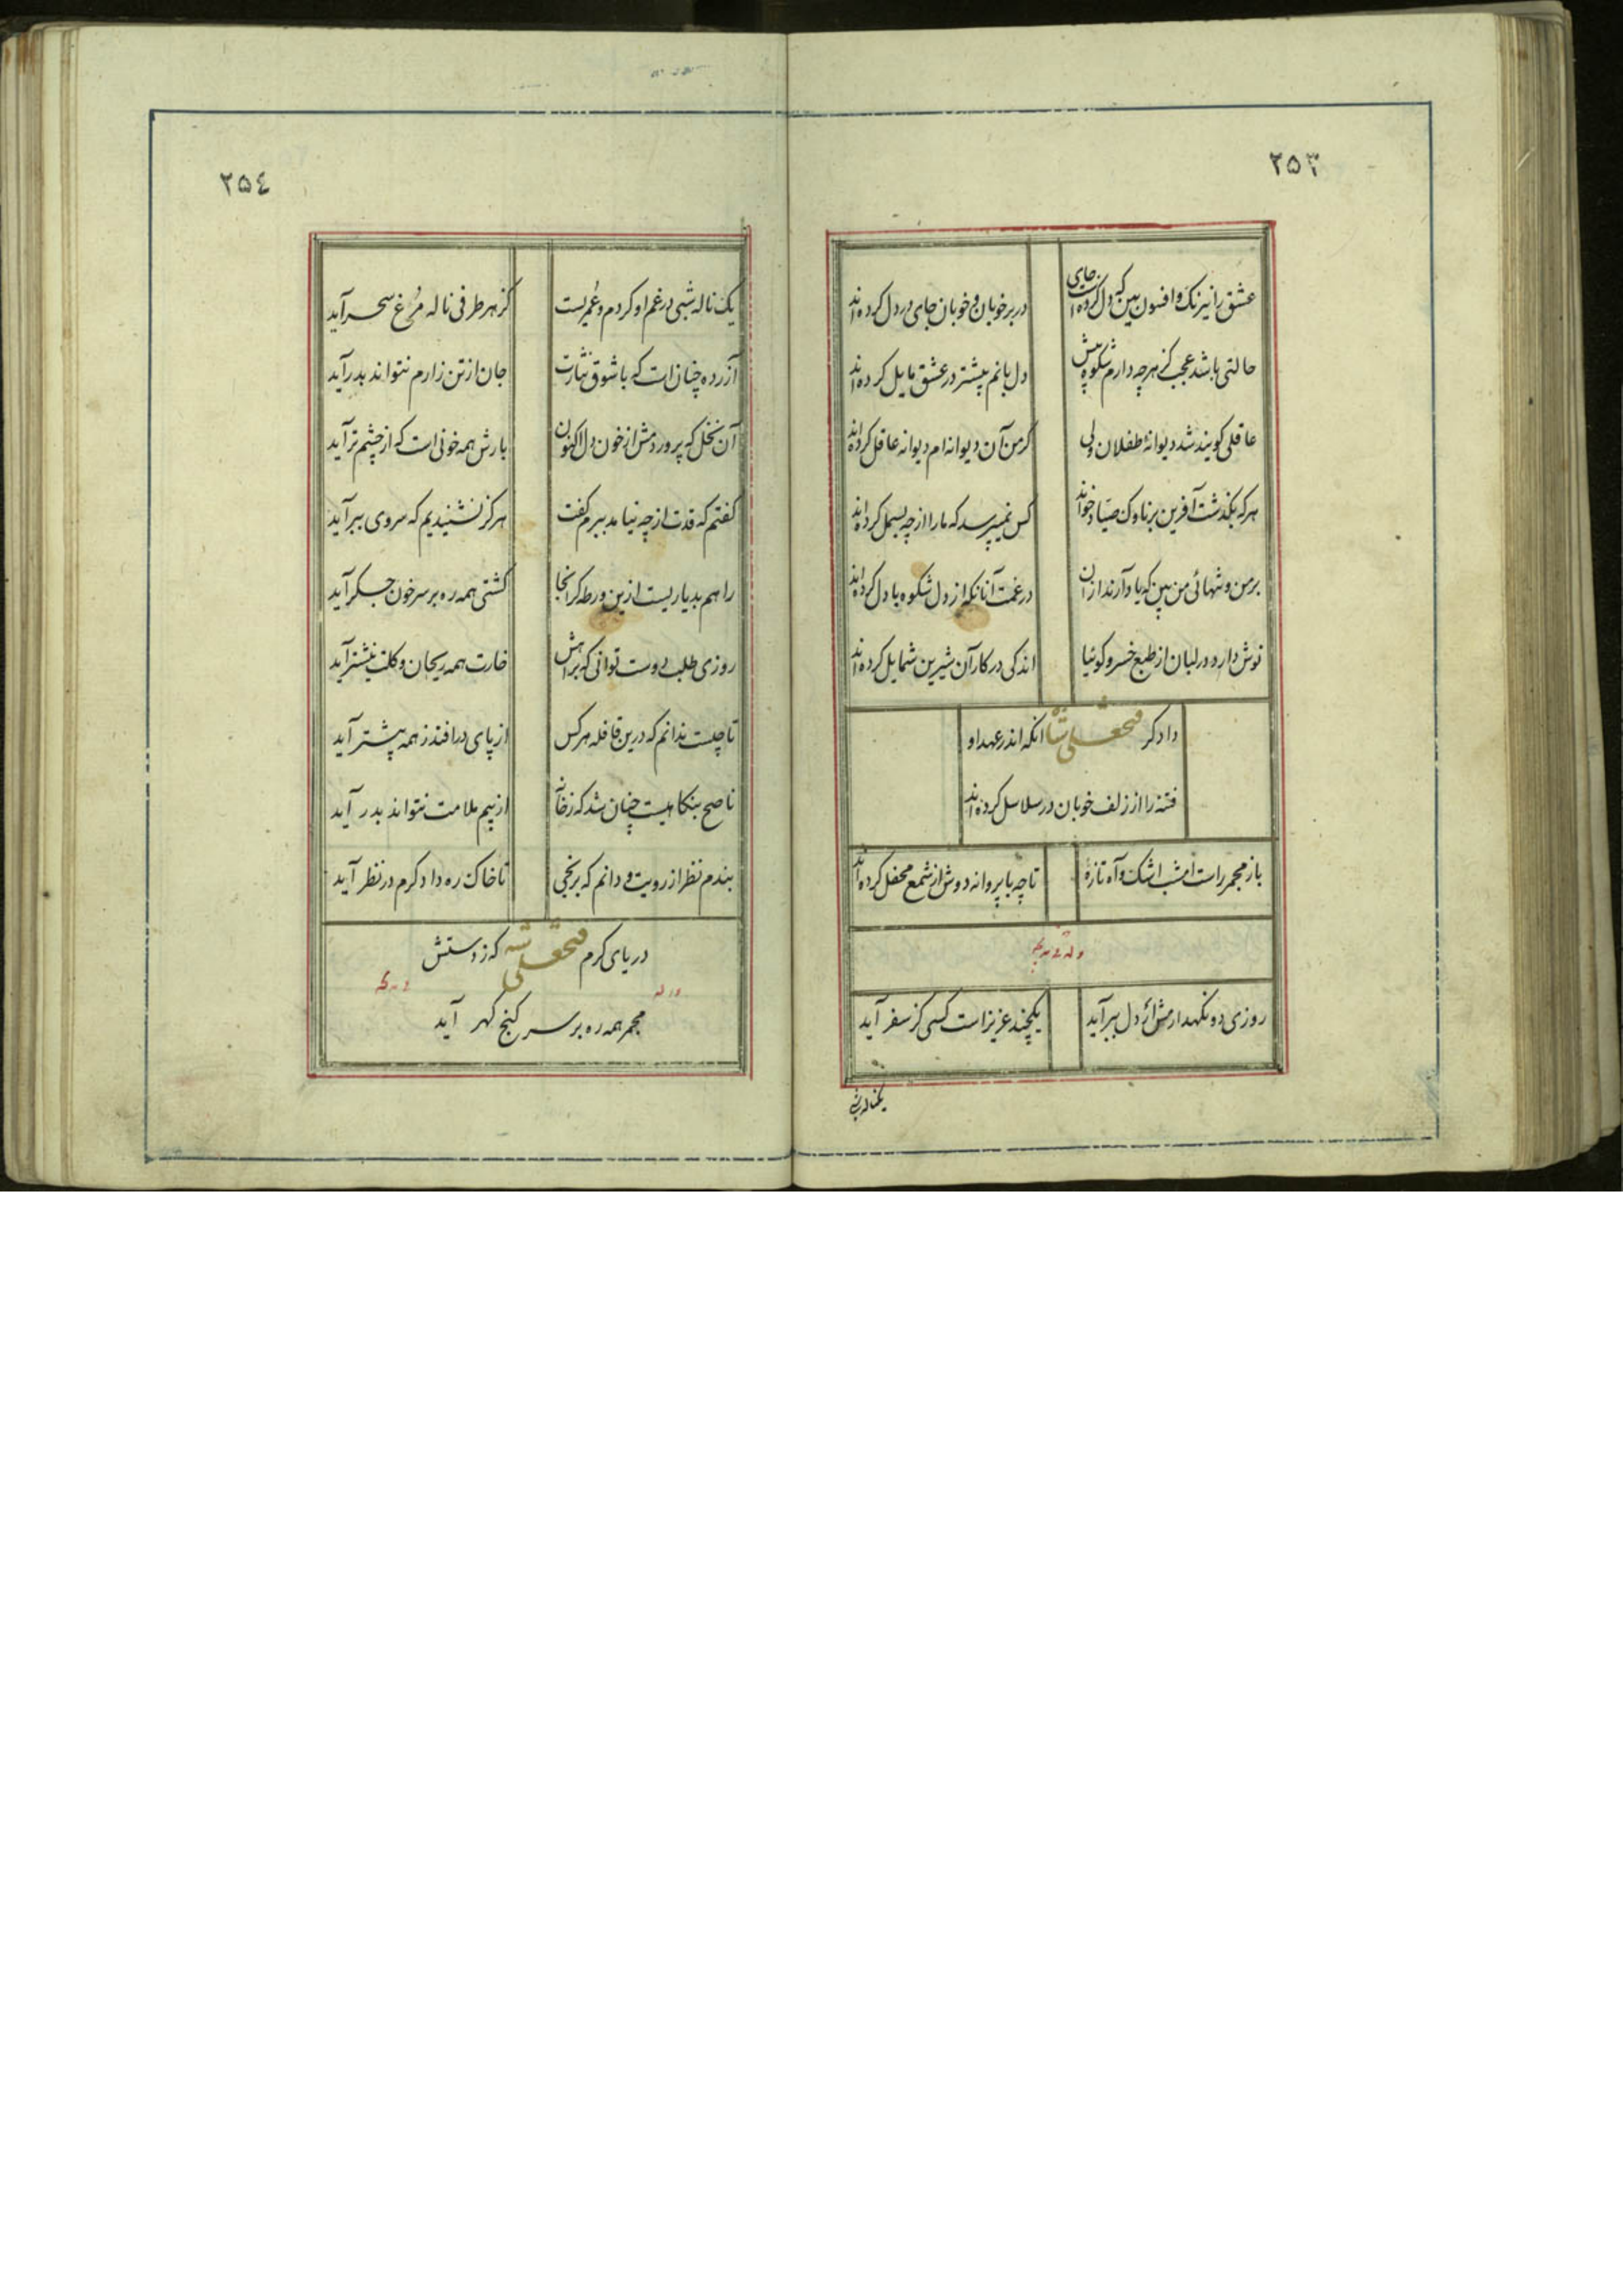 ۲۵۳
عشق را نیرنک و افسون بین که دل کرده جای در بر خوبان و خوبان جای در دل کرده اند
حالتی باشد عجب کز هر چه دارم شکوه بیش دل بانم بیشتر در عشق مایل کرده اند
عاقلی کویند شد دیوانهٔ طفلان ولی کر من آن دیوانه ام دیوانه عاقل کرده اند
هر که بکذشت آفرین بر ناوک صیاد خواند کس نمیپرسد که ما را از چه بسمل کرده اند
بر من و تنهائی من بین که یاد آرند از ان در غمت آنانکه از دل شکوه با دل کرده اند
نوش دارو در لبان از طبع خسرو کوئیا اندکی در کار آن شیرین شمایل کرده اند
دادکر فتحعلی شا انکه اندر عهد او
فتنه را از زلف خوبان در سلاسل کرده اند
باز مجمر راست امشب اشک و آه تازهٔ تا چه با پروانه دوش از شمع محفل کرده اند
روزی دو نکهدارمش ار دل ببر آید یکچند عزیز است کسی کز سفر آید
یکناله شبی
۲۵٤
یک ناله شبی در غم او کردم و عمریست کز هر طرفی ناله مرغ سحر آید
آزرده چنان است که با شوق نثارت جان از تن زارم نتواند بدر آید
آن نخل که پروردمش از خون دل اکنون بارش همه خونی است که از چشم تر آید
کفتم که قدت از چه نیامد ببرم کفت هرکز نشنیدیم که سروی ببر آید
راهم بدیاریست ازین ورطه کز انجا کشتی همه ره بر سر خون جکر آید
روزی طلب دوست توانی که براهش خارت همه ریحان و کلت نیشتر آید
تا چیست ندانم که درین قافله هر کس از پای درافتد ز همه پیشتر آید
ناصح بنکاهیت چنان شد که ز خانه از بیم ملامت نتواند بدر آید
بندم نظر از رویت و دانم که برنجی تا خاک ره دادکرم در نظر آید
دریای کرم فتحعلی شه که ز دستش
مجمر همه ره بر سر کنج کهر آید